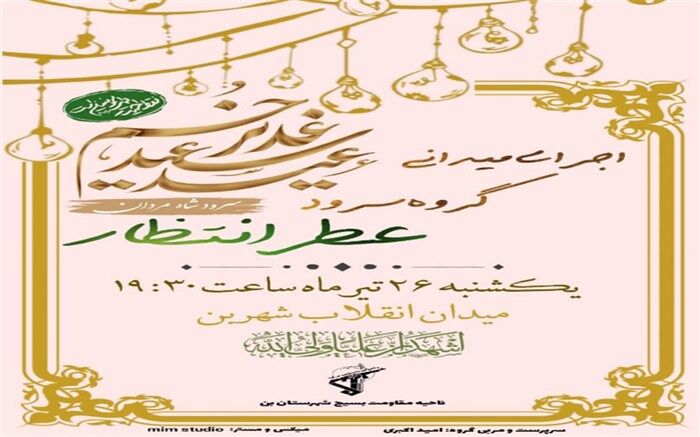 عید سعید غدیر خم
اجرای میدانی
گروه سرود
سرود شاه مردان
عطر انتظار
یکشنبه ۲۶ تیر ماه ساعت ۱۹:۳۰
میدان انقلاب شهر بن
اشهد ان علیا ولی الله
ناحیه مقاومت بسیج شهرستان بن
سرپرست و مربی گروه: امید اکبری
میکس و مستر: mim studio